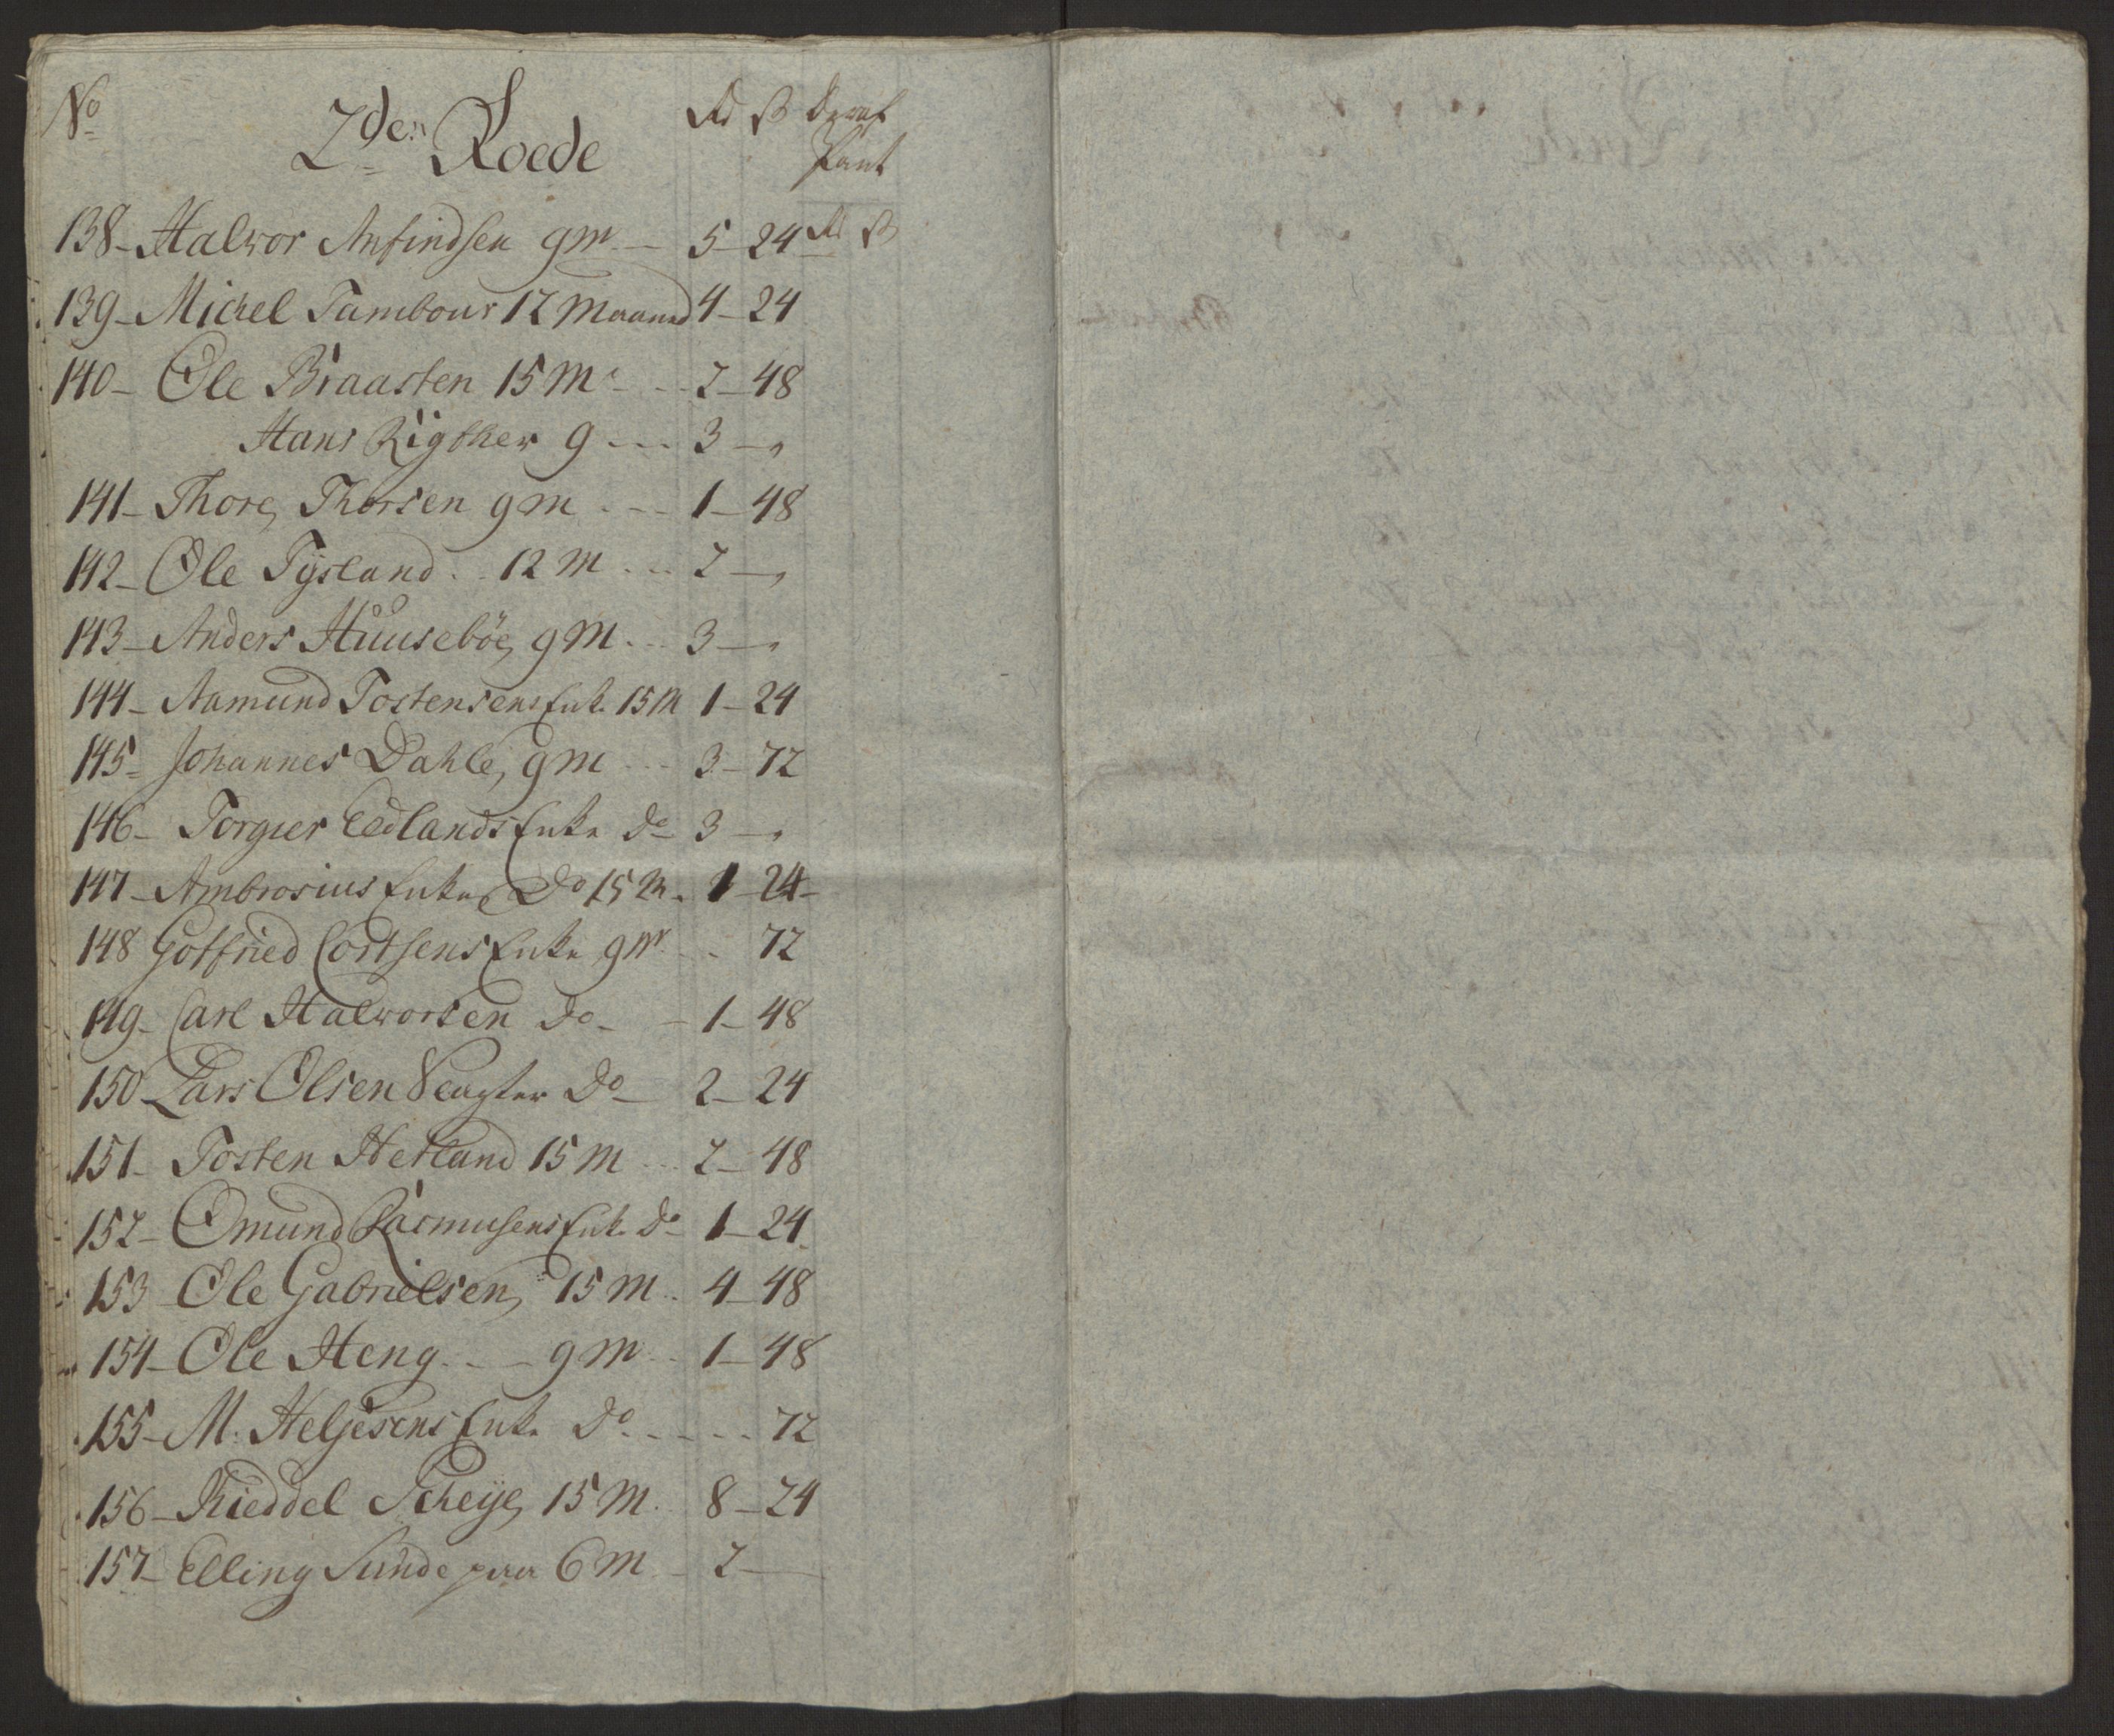 No 2den Roede Rd ß Deraf
Pant
138 - Halvor Anfindsen 9 m - 5 - 24 Rd ß
139 - Michel Tambour 12 Maaned 4 - 24
140 - Ole Braasten 15 M - 2 - 48
Hans Rigther 9 - 3 - "
141 - Thore Thorsen 9 m - 1 - 48
142 - Ole Tÿsland 12 m - 2 - "
143 - Anders Huusebøe 9 M - 3 - "
144 - Aamund Tostensens Enk. 15 M 1 - 24
145 - Johannes Dahle, 9 m - 3 - 72
146 - Torgier Eedlands Enke do 3 - "
147 - Ambrosius Enke Do 15 M. 1 - 24 -
148 Gotfried Cortsens Enke 9 m - 72
149 - Carl Halvorsen do - 1 - 48
150 - Lars Olsen Vægter Do - 2 - 24
151 - Tosten Hetland 15 M - 2 - 48
152 - Omund Rasmusens Enk. do - 1 - 24
153 - Ole Gabrielsen, 15 M. 4 - 48
154 - Ole Heng - 9 m - 1 - 48
155 - M. Heljesens Enk. do - 72
156 - Kieddel Scheÿe, 15 M. 8 - 24
157 - Elling Sunde paa 6 M - 2 -